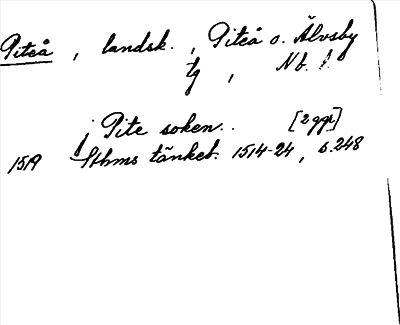 Piteå, landsk., Piteå o. Älvsby
tg, Nb. l.
j Pite soken.. [2 ggr]
1519 Sthms tänkeb. 1514-24, s. 248